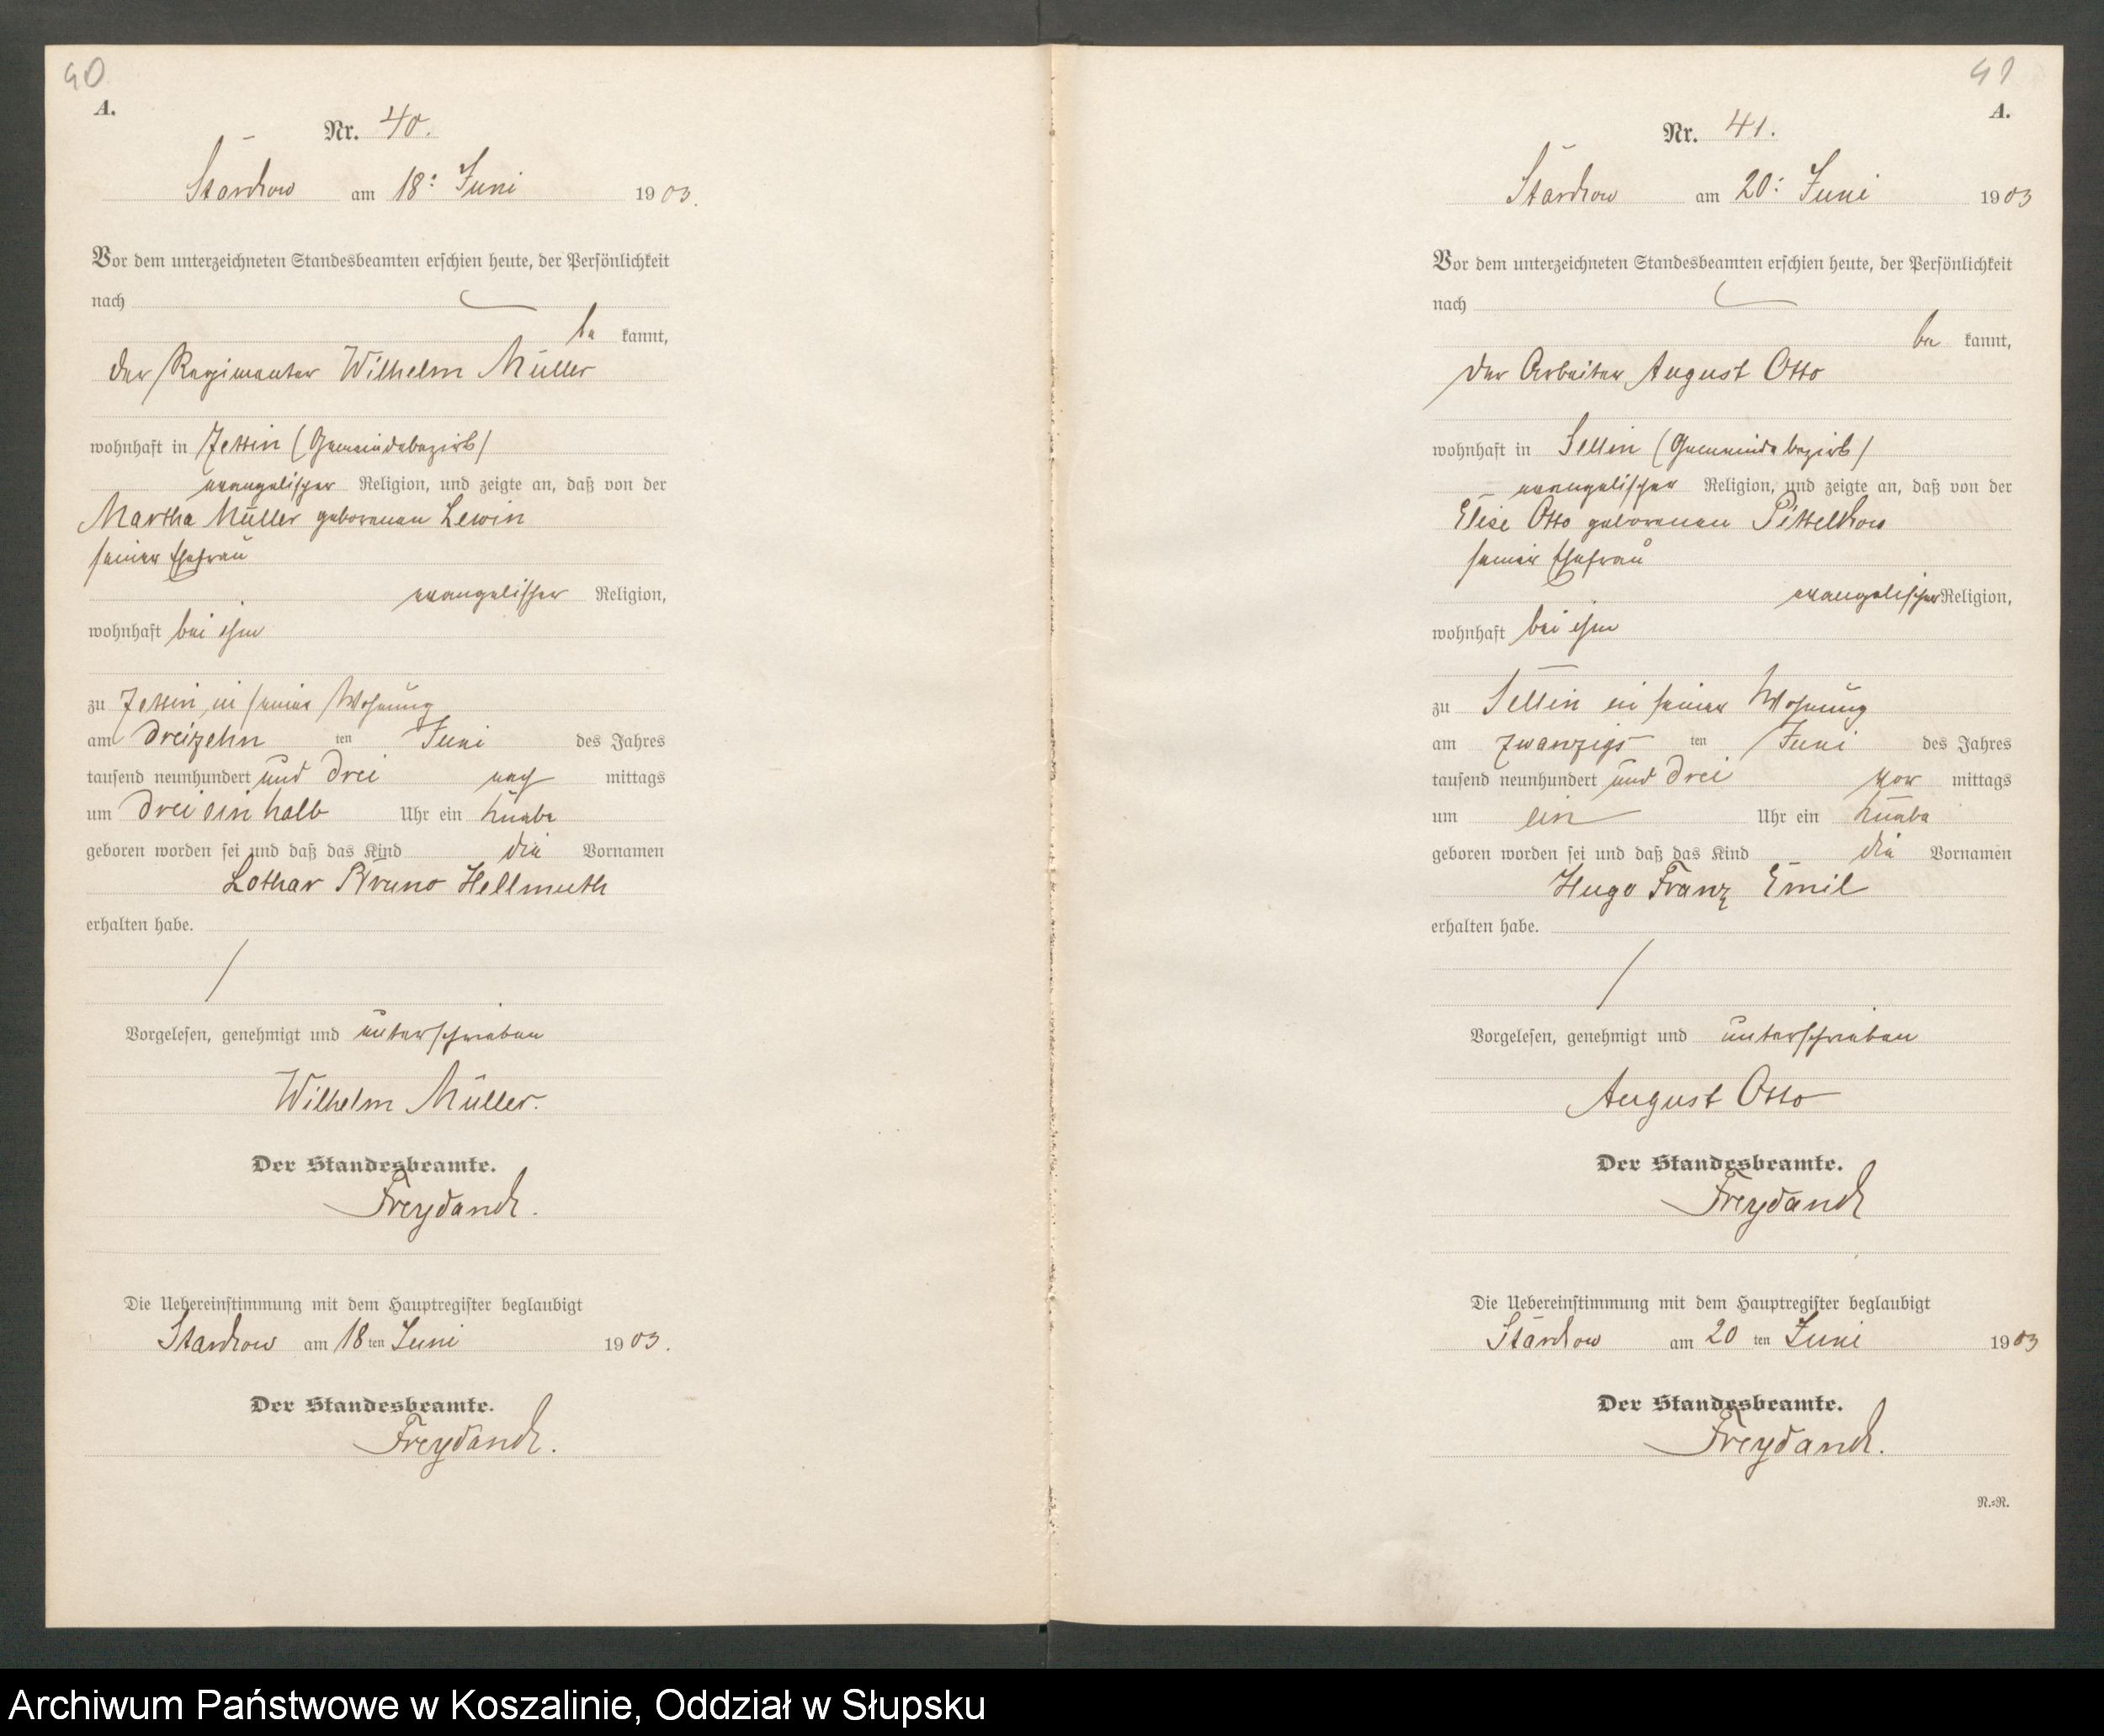 40
A.
Nr. 40.
Starkow am 18ᵗ Juni 1903.
Vor dem unterzeichneten Standesbeamten erschien heute, der Persönlichkeit
nach
be kannt,
der Regimenter Wilhelm Müller
wohnhaft in Jessin (Gemeindebezirk)
evangelischer Religion, und zeigte an, daß von der
Martha Müller geborenen Lewin
seiner Ehefrau
evangelischer Religion,
wohnhaft bei ihm
zu in seiner Wohnung
am dreizehn ten Juni des Jahres
tausend neunhundert und drei nach mittags
um drei ein halb Uhr ein Knabe
geboren worden sei und daß das Kind die Vornamen
Lothar Bruno Hellmuth
erhalten habe.
Vorgelesen, genehmigt und unterschrieben
Wilhelm Müller.
Der Standesbeamte.
Freydanck.
Die Uebereinstimmung mit dem Hauptregister beglaubigt
Starkow am 18 ten Juni 1903.
Der Standesbeamte.
Freydanck.
41
A.
Nr. 41.
Starkow am 20ᵗ Juni 1903
Vor dem unterzeichneten Standesbeamten erschien heute, der Persönlichkeit
nach
be kannt,
der Arbeiter August Otto
wohnhaft in Sellin (Gemeindebezirk)
evangelischer Religion, und zeigte an, daß von der
Elise Otto geborenen Pittelkow
seiner Ehefrau
evangelischer Religion,
wohnhaft bei ihm
zu Sellin in seiner Wohnung
am zwanzigs ten Juni des Jahres
tausend neunhundert und drei vor mittags
um ein Uhr ein Knabe
geboren worden sei und daß das Kind die Vornamen
Hugo Franz Emil
erhalten habe.
Vorgelesen, genehmigt und unterschrieben
August Otto
Der Standesbeamte.
Freydanck
Die Uebereinstimmung mit dem Hauptregister beglaubigt
Starkow am 20 ten Juni 1903
Der Standesbeamte.
Freydanck.
N.=R.
Archiwum Państwowe w Koszalinie, Oddział w Słupsku